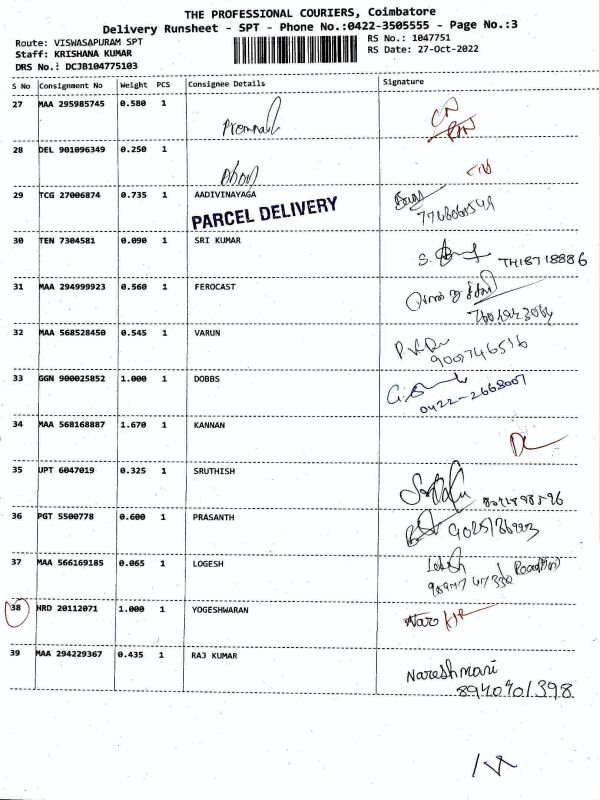 THE PROFESSIONAL COURIERS, Coimbatore
Delivery Runsheet - SPT - Phone No.:0422-3505555 - Page No.:3
Route: VISWASAPURAM SPT
RS No.: 1047751
Staff: KRISHANA KUMAR
RS Date: 27-Oct-2022
DRS No.: DCJB104775103
S No Consignment No Weight PCS Consignee Details Signature
27 MAA 295985745 0.580 1
28 DEL 901096349 0.250 1
29 TCG 27006874 0.735 1 AADIVINAYAGA
PARCEL DELIVERY
30 TEN 7304581 0.090 1 SRI KUMAR
31 MAA 294999923 0.560 1 FEROCAST
32 MAA 568528450 0.545 1 VARUN
9007746516
33 GGN 900025852 1.000 1 DOBBS
0422-2668007
34 MAA 568168887 1.670 1 KANNAN
35 UPT 6047019 0.325 1 SRUTHISH
36 PGT 5500778 0.600 1 PRASANTH
37 MAA 566169185 0.065 1 LOGESH
38 HRD 20112071 1.000 1 YOGESHWARAN
39 MAA 294229367 0.435 1 RAJ KUMAR
Nareshmani
8940701398